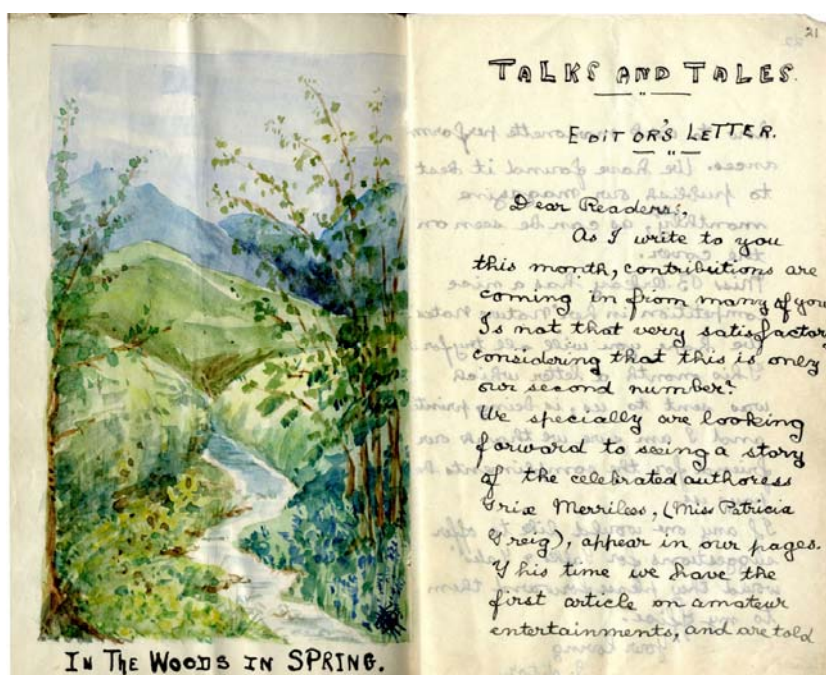 IN THE WOODS IN SPRING.
21
TALKS AND TALES.
EDITOR'S LETTER.
Dear Readers;,
As I write to you
this month, contributions are
coming in from many of you
Is not that very satisfactory
considering that this is only
our second number?
We specially are looking
forward to seeing a story
of the celebrated authoress
Trix Merriless, (Miss Patricia
Greig), appear in our pages.
This time we have the
first article on amateur
entertainments, and are told